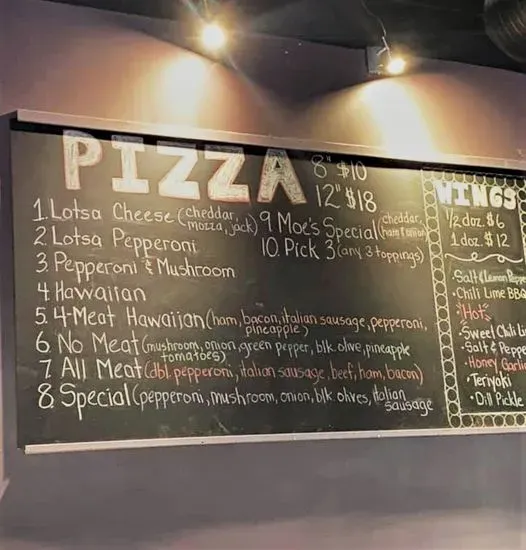 PIZZA
8" $10
12" $18
1. Lotsa Cheese (cheddar, mozza, jack)
2. Lotsa Pepperoni
3. Pepperoni & Mushroom
4. Hawaiian
5. 4-Meat Hawaiian (ham, bacon, italian sausage, pepperoni,
pineapple)
6. No Meat (mushroom, onion, green pepper, blk. olive, pineapple
tomatoes)
7. All Meat (dbl. pepperoni, italian sausage, beef, ham, bacon)
8. Special (pepperoni, mushroom, onion, blk olives, italian
sausage
9 Moe's Special (cheddar,
ham & onion)
10. Pick 3 (any 3 toppings)
WINGS
1/2 doz. $6
1 doz. $12
Salt & Lemon
• Chili Lime BBQ
• Hot
• Sweet Chili
• Salt & Peppe
• Honey Garlic
• Teriyaki
• Dill Pickle